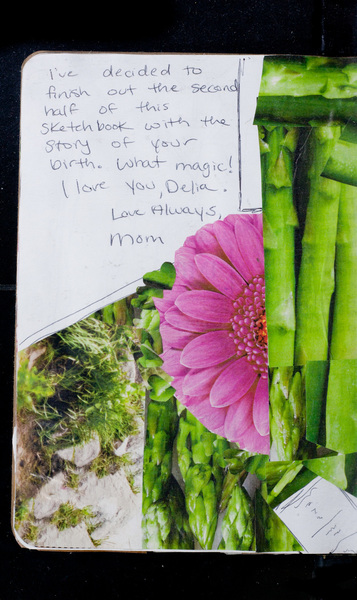 I've decided to
finish out the second
half of this
sketchbook with the
story of your
birth. What magic!
I love you, Delia.
Love Always,
Mom